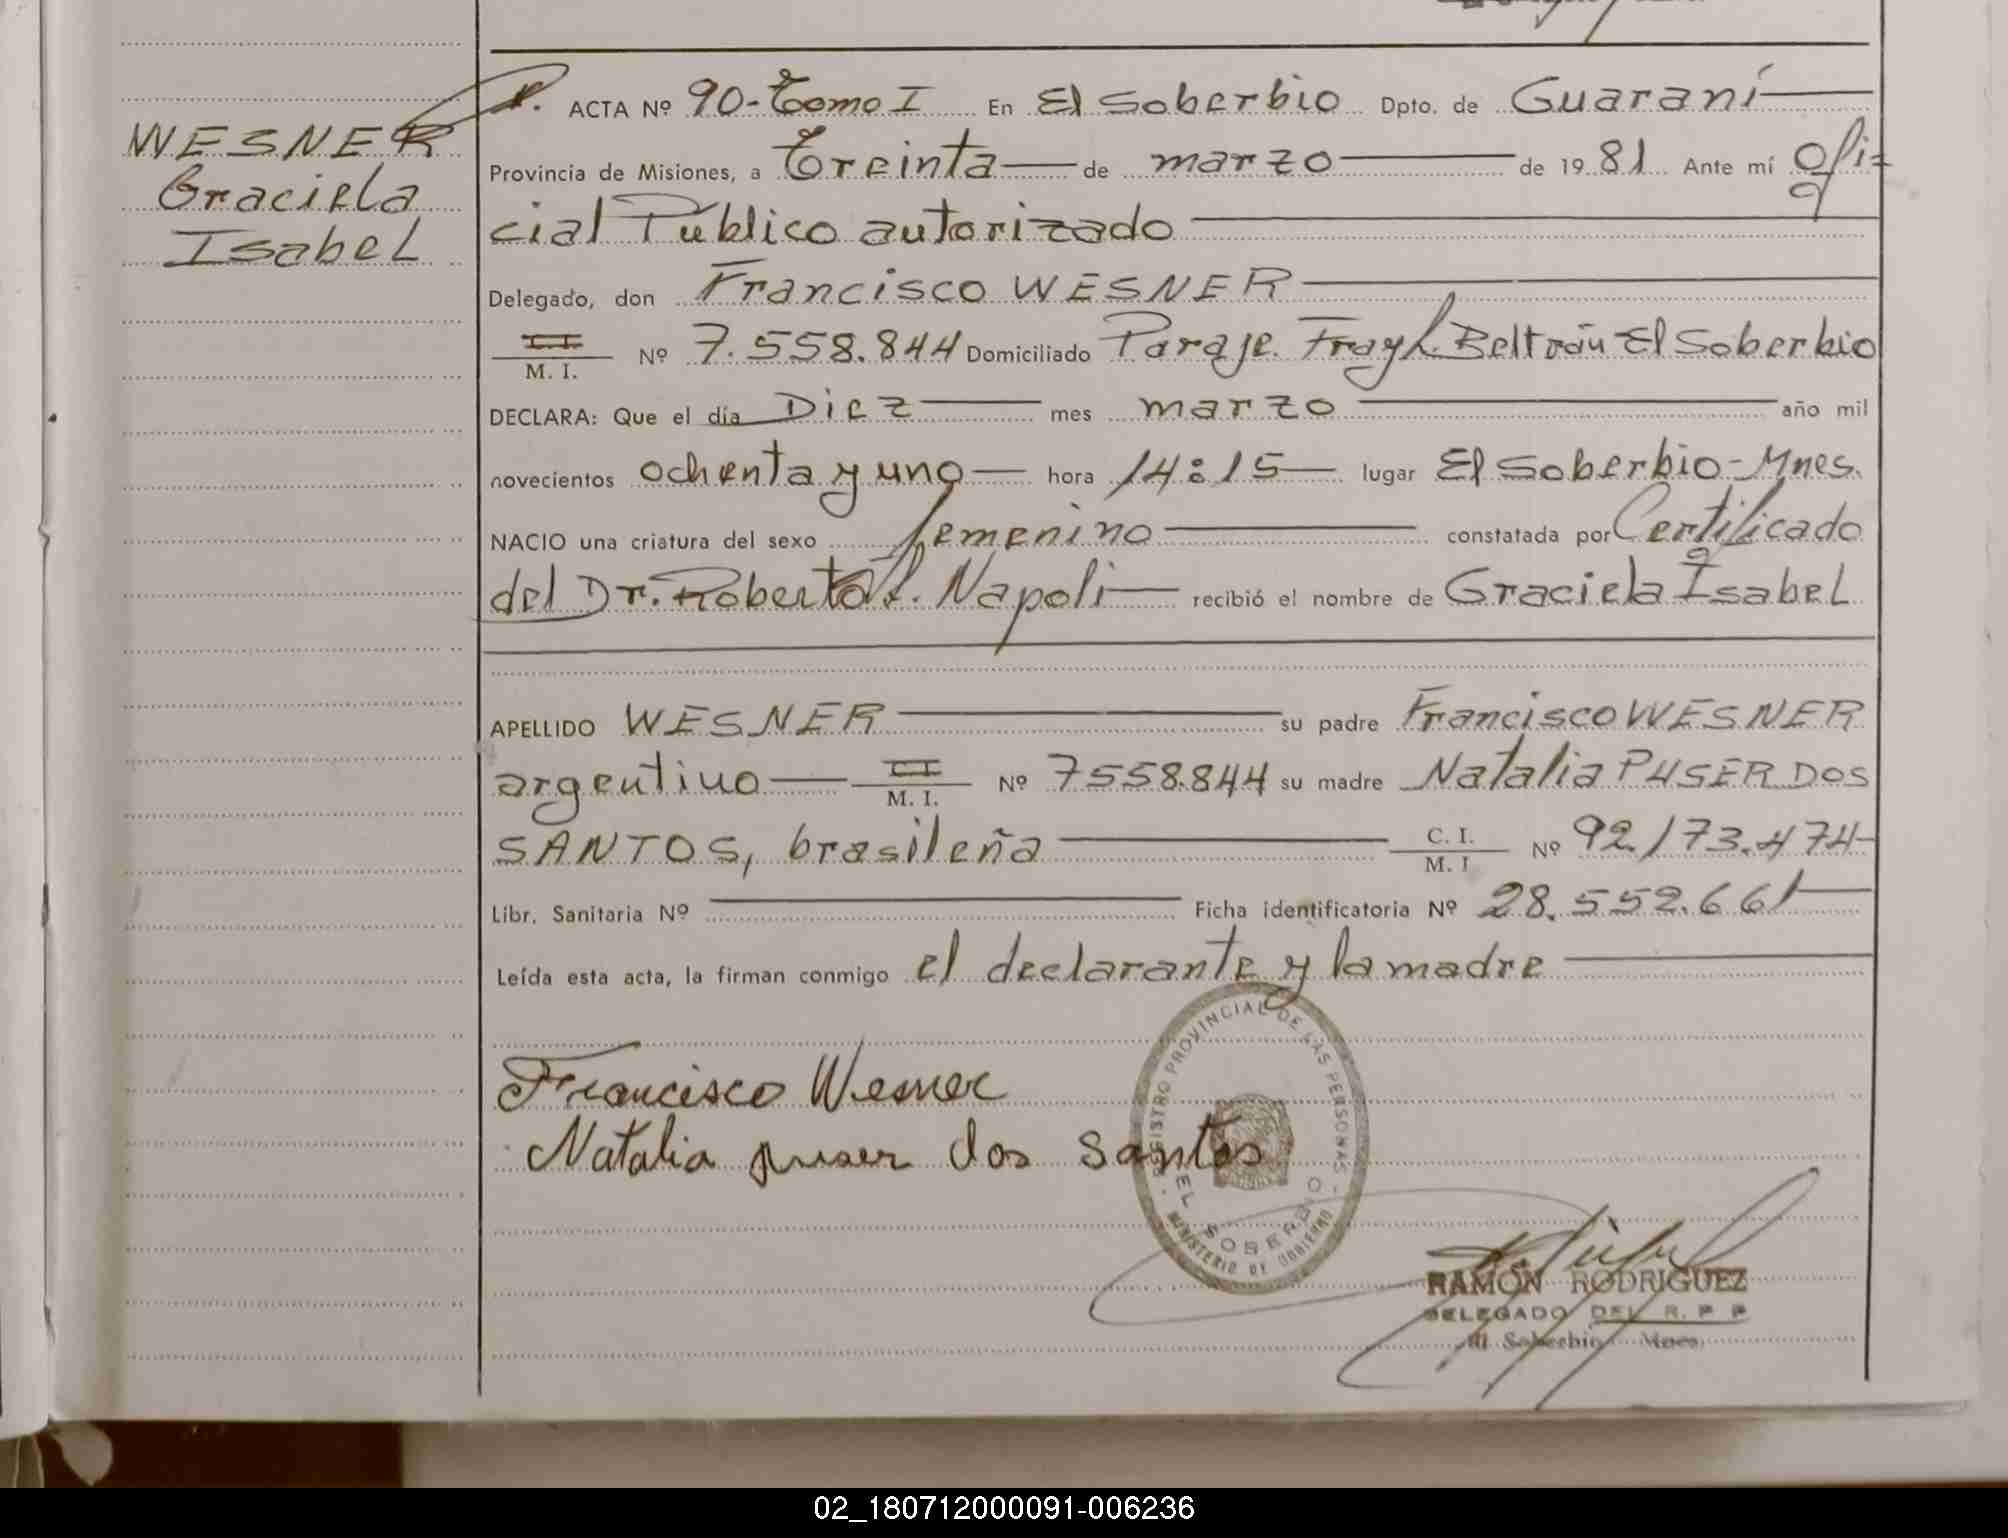 WESNER
Graciela
Isabel
ACTA Nº 90-Tomo I En El Soberbio Dpto. de Guaraní
Provincia de Misiones, a Treinta de marzo de 1981 Ante mí Ofi=
cial Público autorizado
Delegado, don Francisco WESNER
C.I. M. I. Nº 7.558.844 Domiciliado Paraje Fray L. Beltrán El Soberbio
DECLARA: Que el día Diez mes marzo año mil
novecientos ochenta y uno hora 14:15 lugar El Soberbio-Mnes.
NACIO una criatura del sexo femenino constatada por Certificado
del Dr. Roberto Napoli recibió el nombre de Graciela Isabel
APELLIDO WESNER su padre Francisco WESNER
argentino C.I. M. I. Nº 7558.844 su madre Natalia PUSER DOS
SANTOS, brasileña C. I. M. I Nº 92.173.474
Libr. Sanitaria Nº Ficha identificatoria Nº 28.552.661
Leída esta acta, la firman conmigo el declarante y la madre
Francisco Wesner
Natalia puser dos santos
REGISTRO PROVINCIAL DE LAS PERSONAS
EL SOBERBIO
MINISTERIO DE GOBIERNO
RAMÓN RODRIGUEZ
DELEGADO DEL R. P. P
El Soberbio Mnes.
02_180712000091-006236